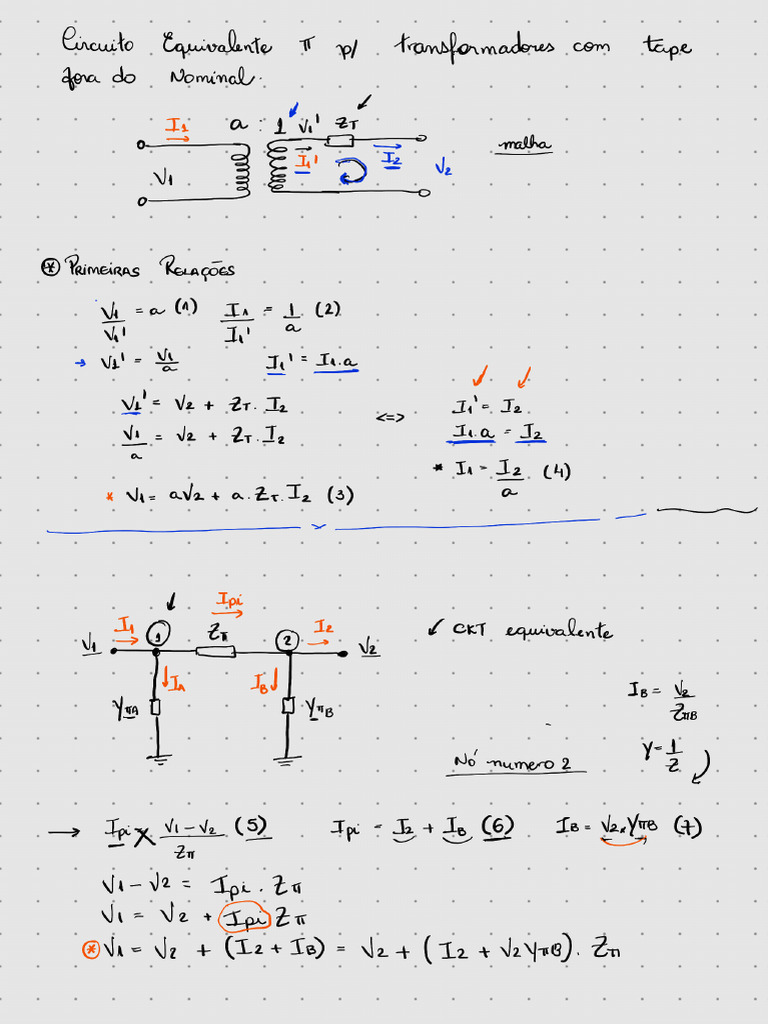 Circuito Equivalente π p/ transformadores com tape
fora do Nominal.
I1 a : 1 V1' ZT
I1' I2
V1 V2
malha
* PRIMEIRAS RELAÇÕES
V1/V1' = a (1) I1/I1' = 1/a (2)
→ V1' = V1/a I1' = I1.a
V1' = V2 + ZT. I2 <=> I1' = I2
V1/a = V2 + ZT. I2 I1.a = I2
* V1 = aV2 + a.ZT.I2 (3) * I1 = I2/a (4)
Ipi
V1 I1 1 Zπ 2 I2 V2
CKT equivalente
IA IB
YπA YπB
IB = V2/ZπB
Y = 1/Z
Nó numero 2
→ Ipi × V1-V2/Zπ (5) Ipi = I2 + IB (6) IB = V2 × YπB (7)
V1 - V2 = Ipi . Zπ
V1 = V2 + Ipi Zπ
* V1 = V2 + (I2 + IB) = V2 + (I2 + V2 YπB). Zπ